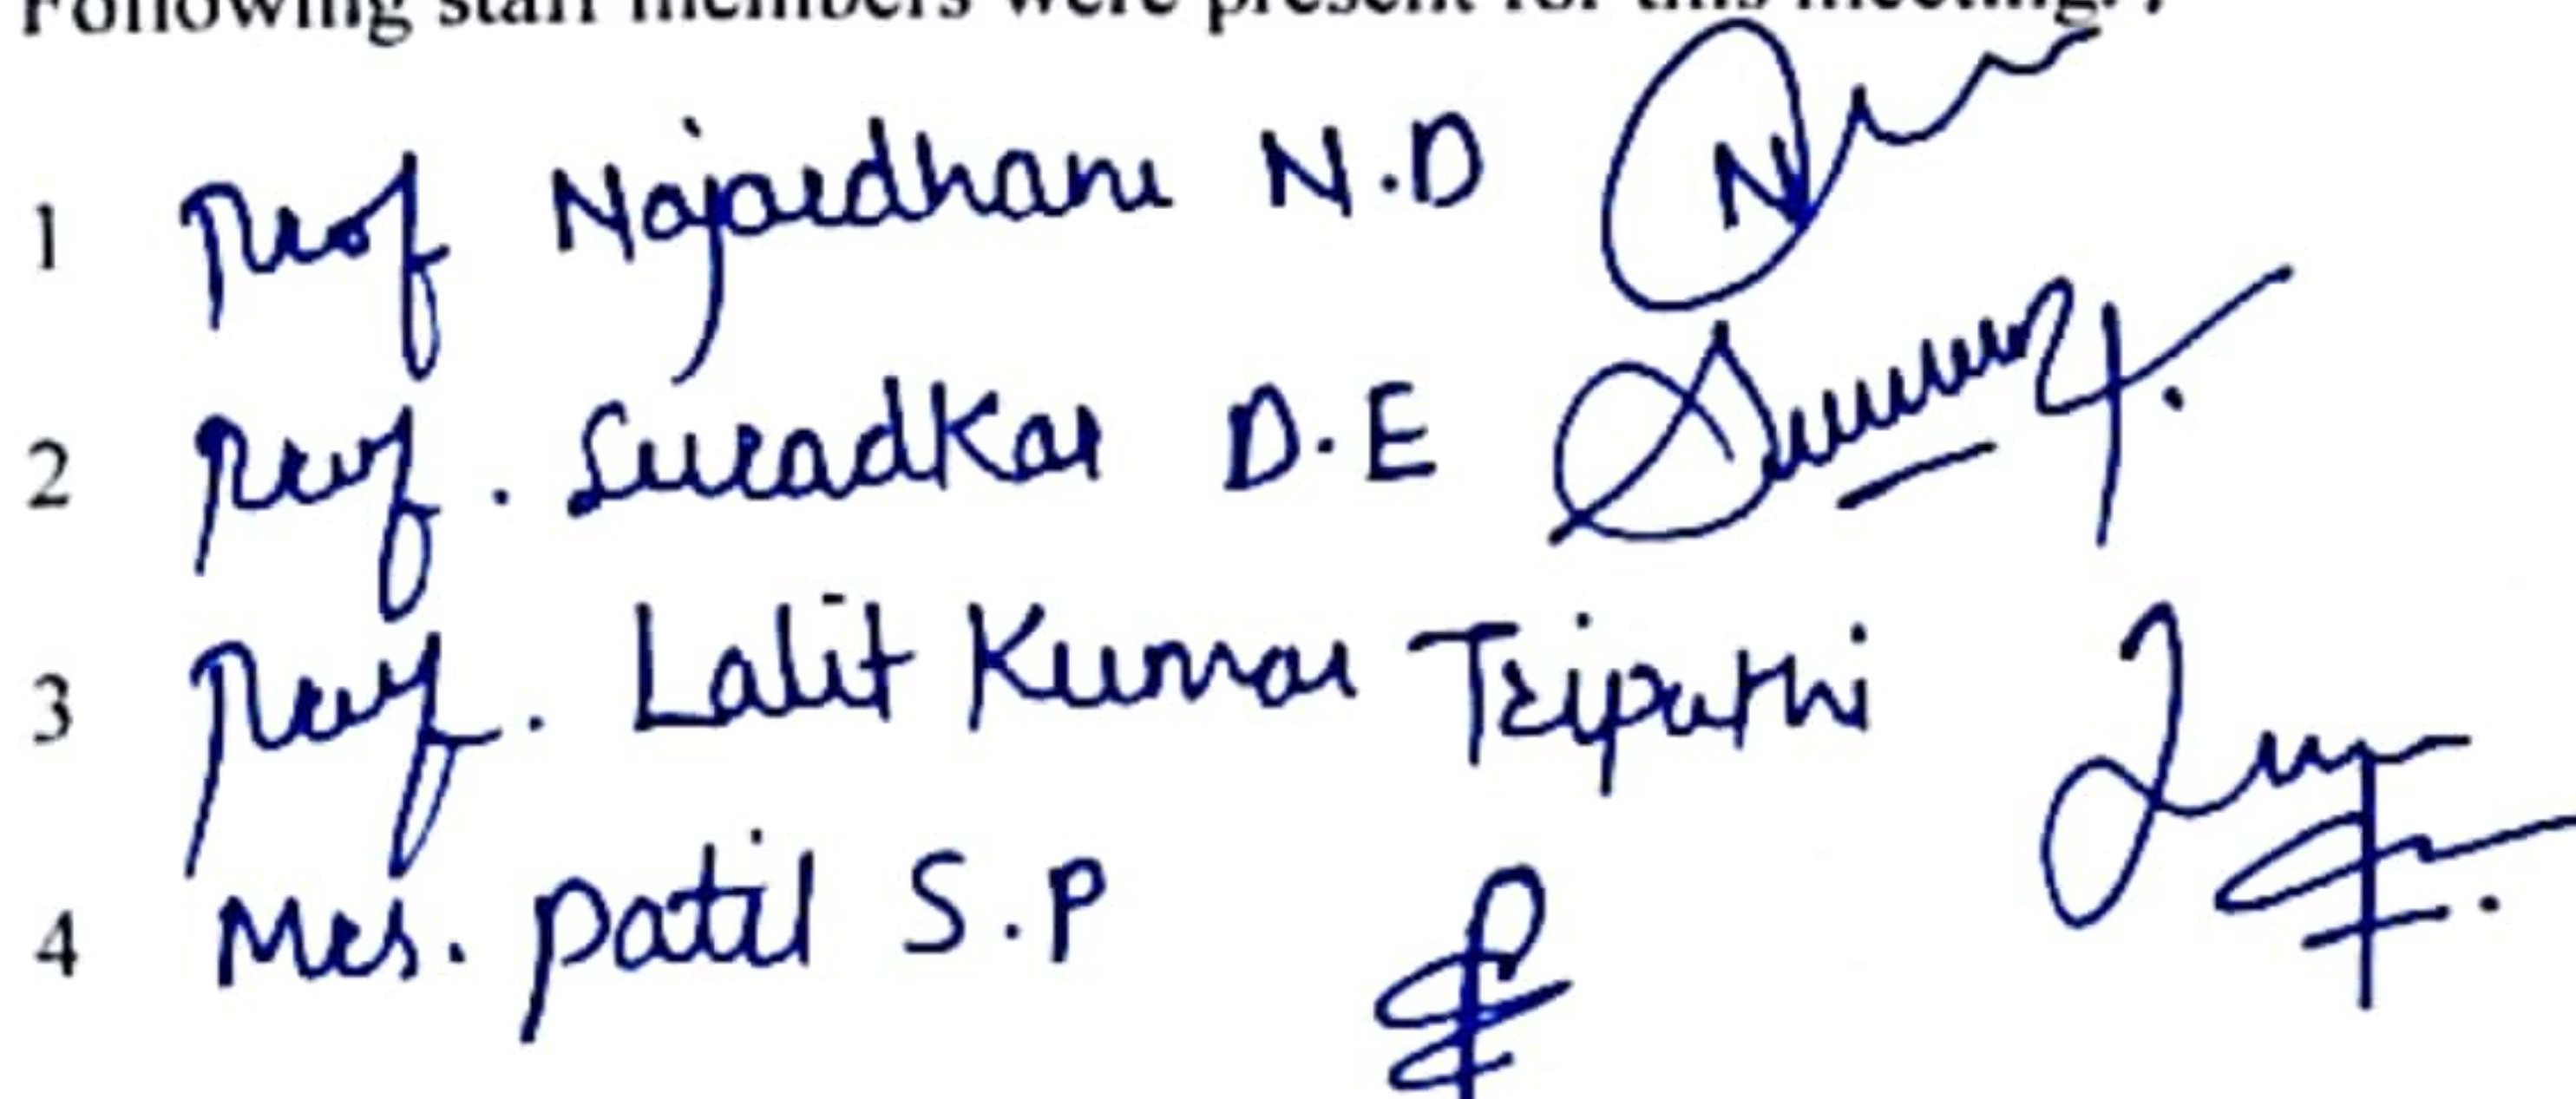 Following staff members were present for this meeting.
1 Prof Najardhane N.D
2 Prof. Suradkar D.E
3 Prof. Lalit Kumar Tripathi
4 Mrs. Patil S.P